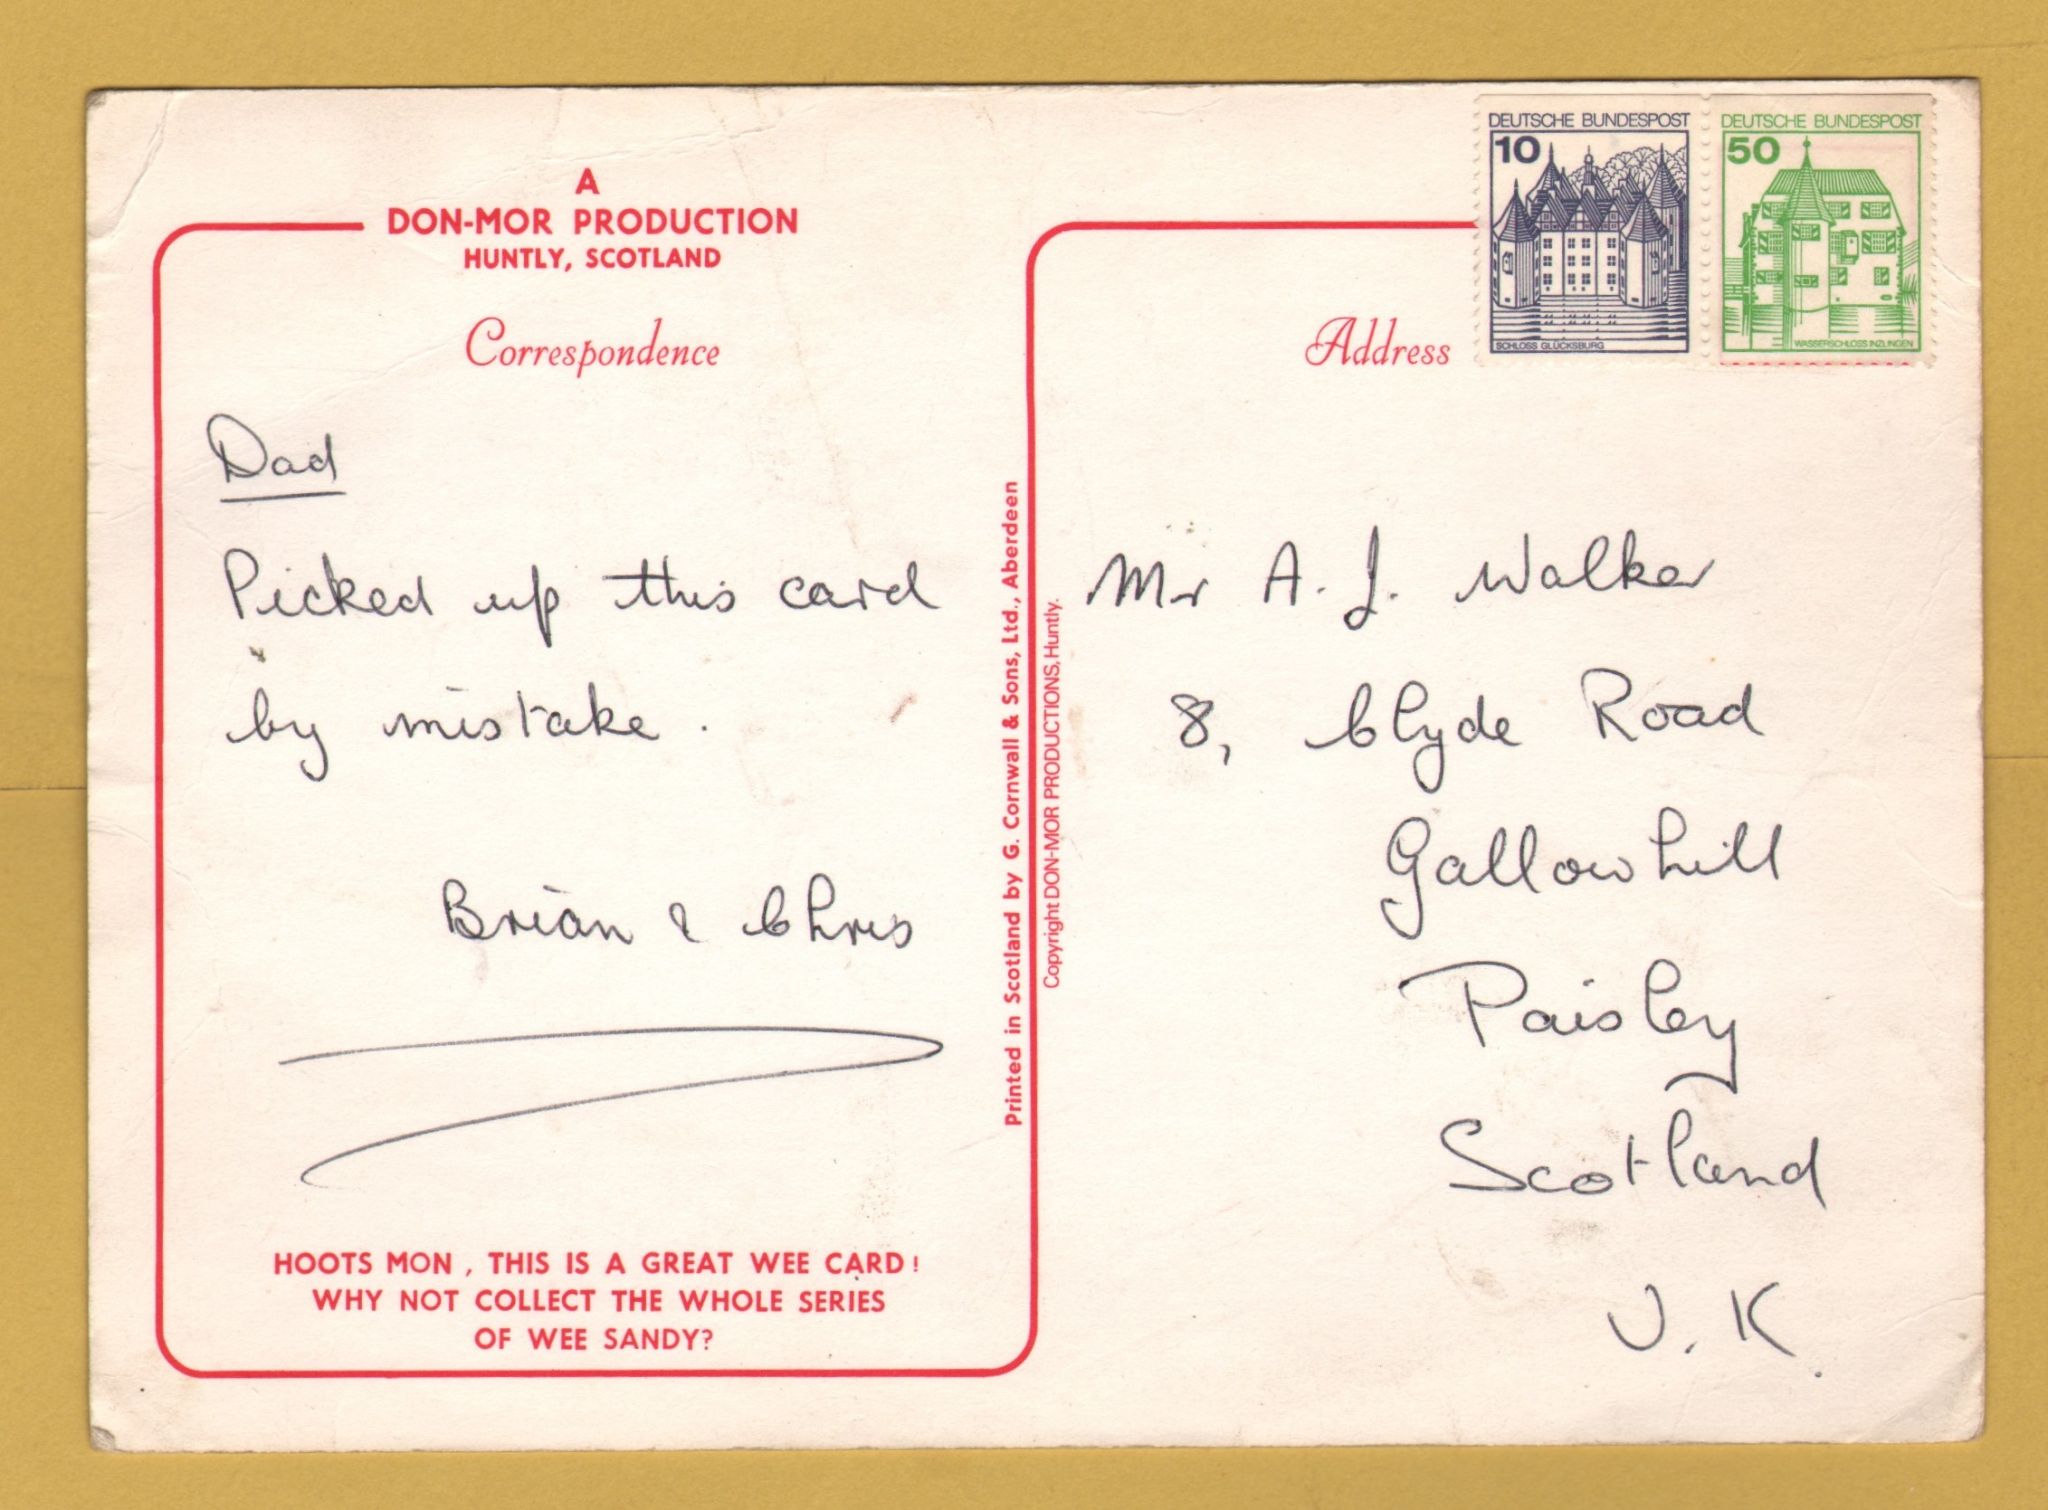 A
DON-MOR PRODUCTION
HUNTLY, SCOTLAND
Correspondence
Dad
Picked up this card
by mistake.
Brian & Chris
HOOTS MON, THIS IS A GREAT WEE CARD!
WHY NOT COLLECT THE WHOLE SERIES
OF WEE SANDY?
Printed in Scotland by G. Cornwall & Sons, Ltd., Aberdeen
Copyright DON-MOR PRODUCTIONS, Huntly.
Address
DEUTSCHE BUNDESPOST
10
SCHLOSS GLÜCKSBURG
DEUTSCHE BUNDESPOST
50
WASSERSCHLOSS INZLINGEN
Mr A. J. Walker
8, Clyde Road
Gallowhill
Paisley
Scotland
U.K.